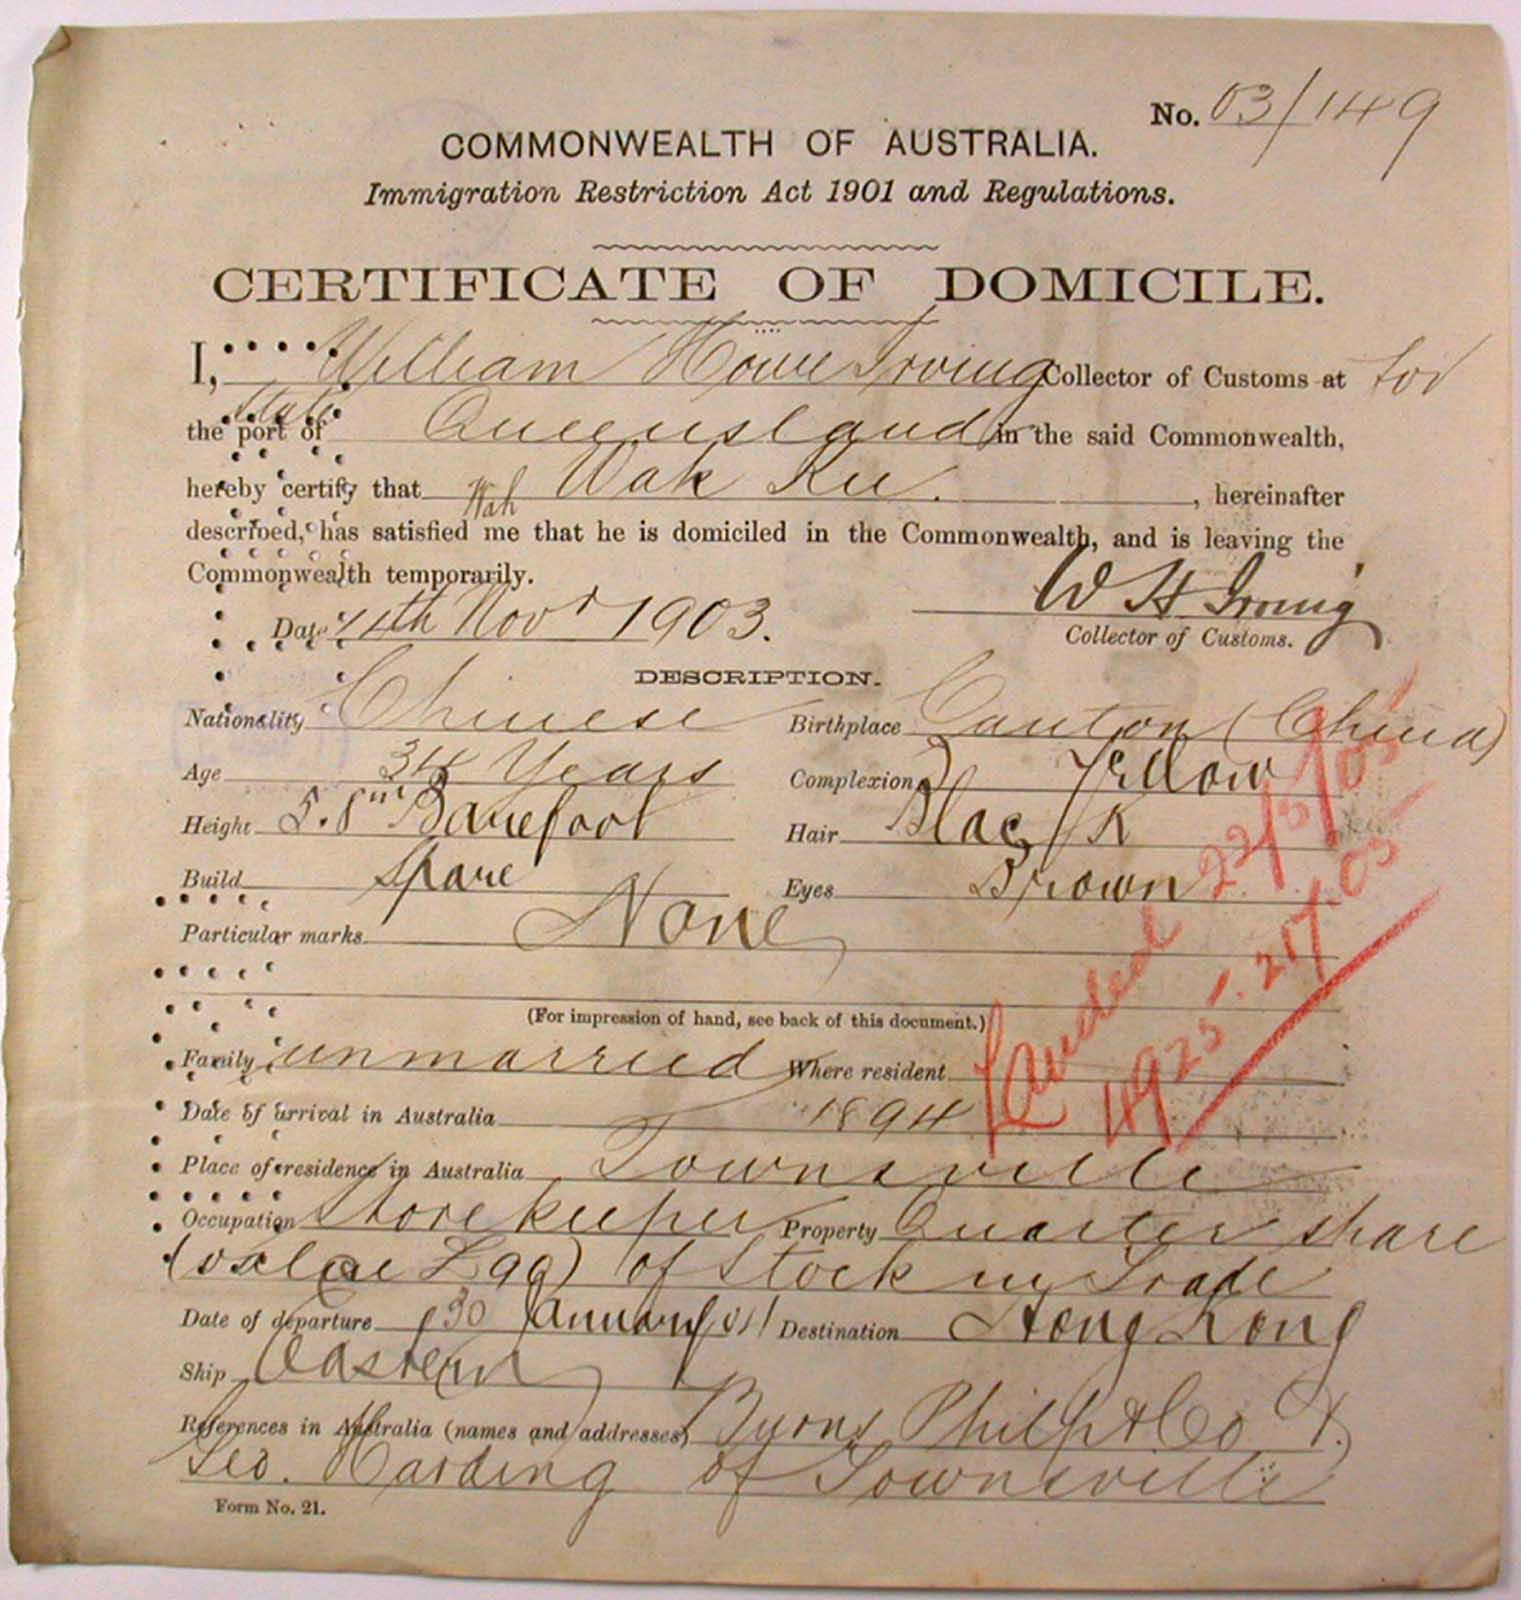 No. 03/149
COMMONWEALTH OF AUSTRALIA.
Immigration Restriction Act 1901 and Regulations.
CERTIFICATE OF DOMICILE.
I, William Howe Irving Collector of Customs at for
the port of State Queensland in the said Commonwealth,
hereby certify that Wah Wak Kee. , hereinafter
described, has satisfied me that he is domiciled in the Commonwealth, and is leaving the
Commonwealth temporarily.
Date 14th Novr 1903. W H Irving
Collector of Customs.
DESCRIPTION.
Nationality Chinese Birthplace Canton (China)
Age 34 Years Complexion Yellow
Height 5.8in Barefoot Hair Black
Build Spare Eyes Brown
Particular marks None
(For impression of hand, see back of this document.)
Landed 22/5/05
4925. 21/7.05
Family unmarried Where resident
Date of arrival in Australia 1894
Place of residence in Australia Townsville
Occupation Storekeeper Property Quarter share
(value £99) of Stock in Trade
Date of departure 30 January 04 Destination Hong Kong
Ship Eastern
References in Australia (names and addresses) Burns Philp & Co
Geo. Harding of Townsville
Form No. 21.